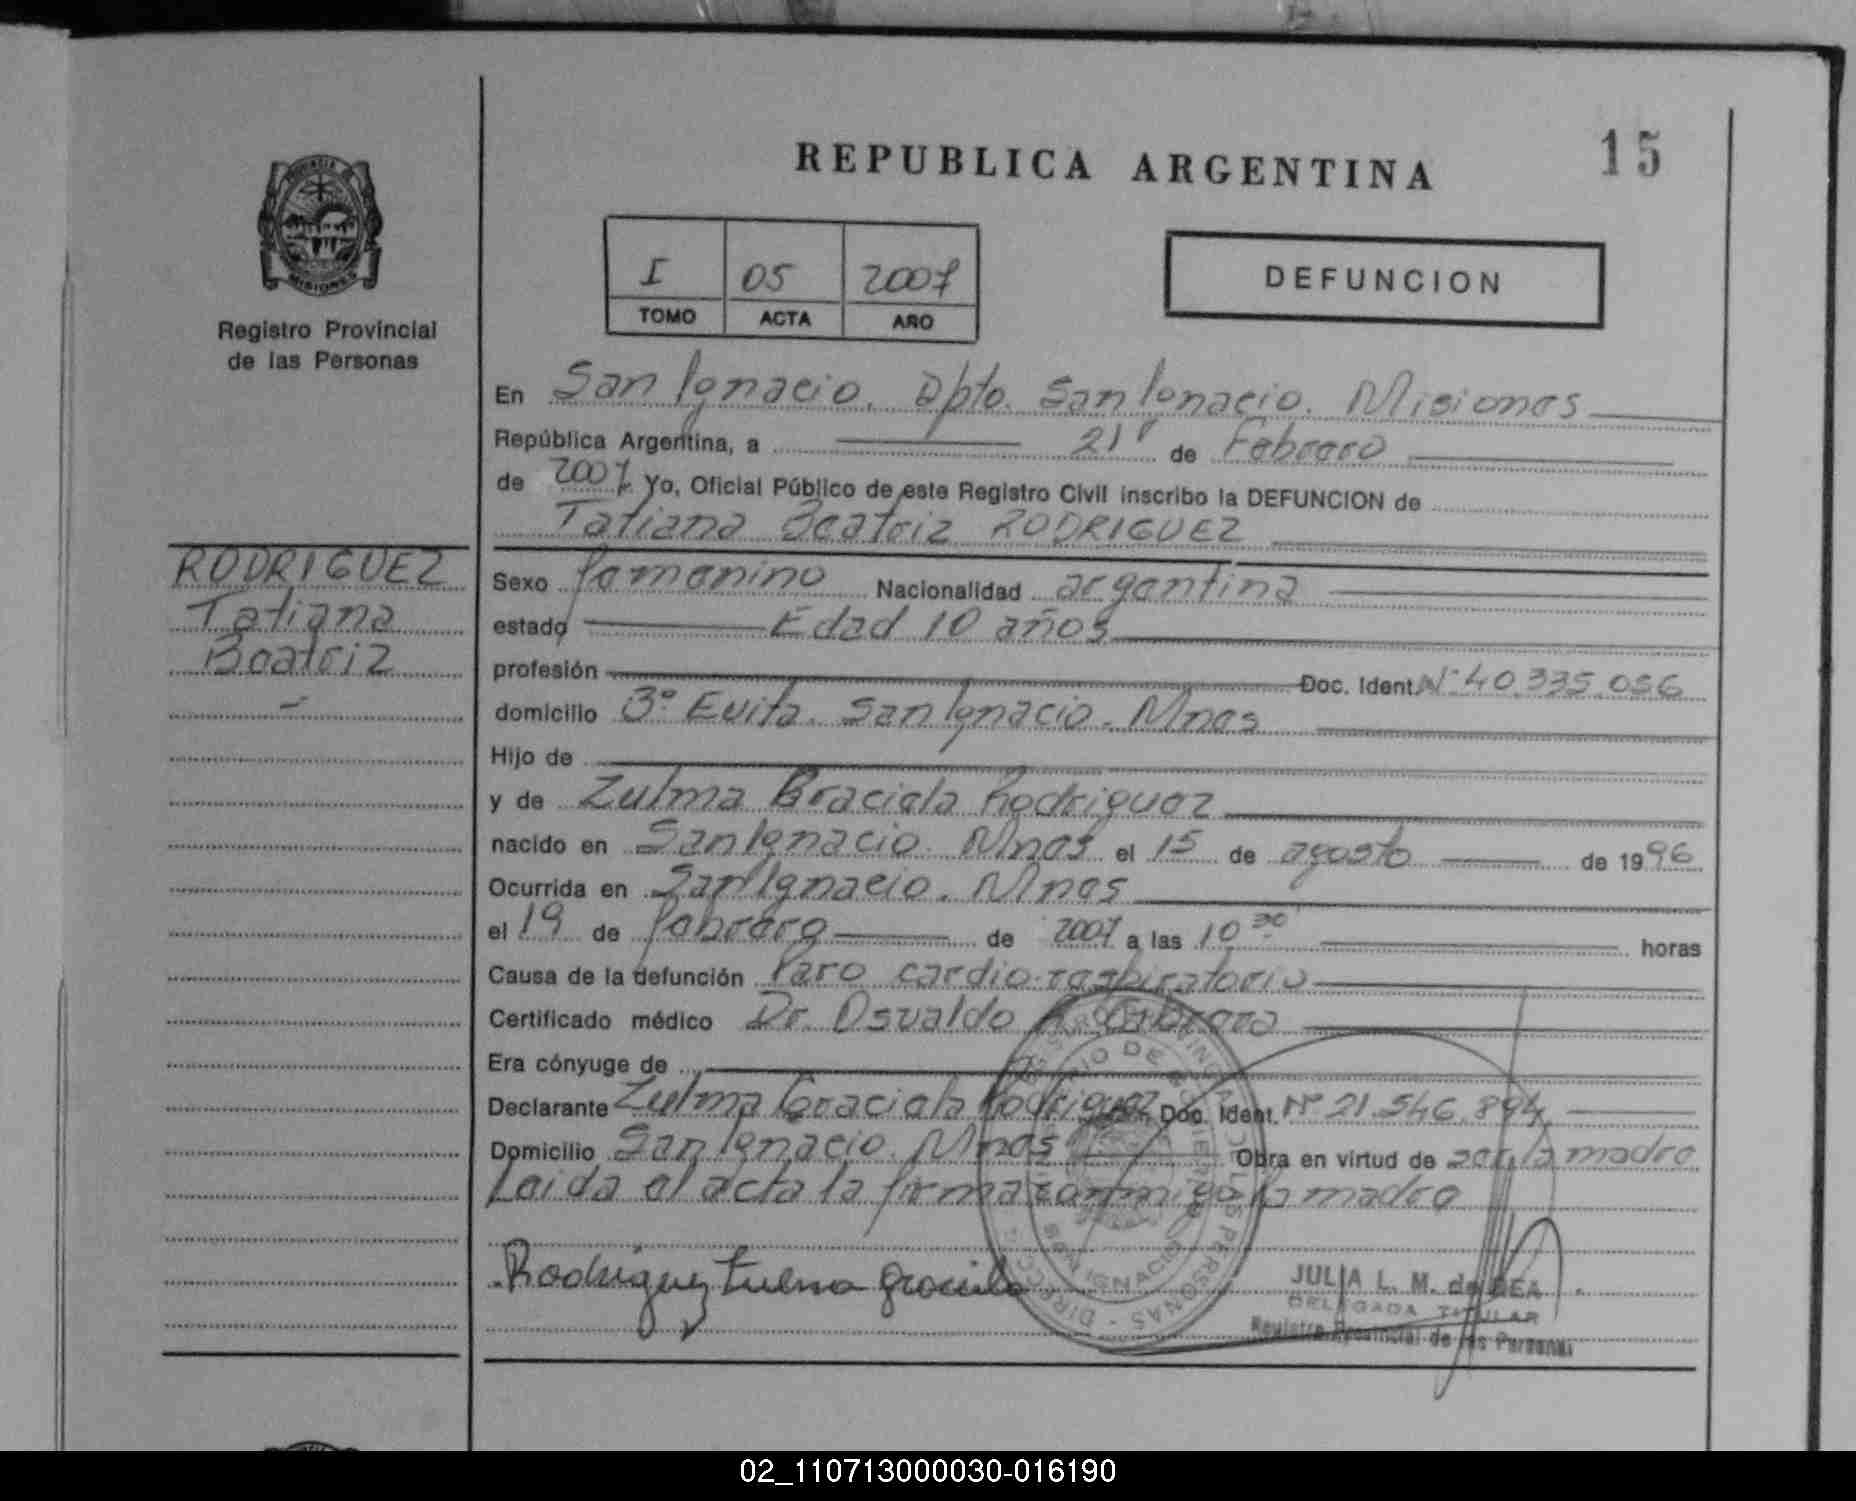 REPUBLICA ARGENTINA
15
PROVINCIA DE
MISIONES
Registro Provincial
de las Personas
I 05 2007
TOMO ACTA AÑO
DEFUNCION
En San Ignacio. Dpto. San Ignacio. Misiones
República Argentina, a 21 de Febrero
de 2007. Yo, Oficial Público de este Registro Civil inscribo la DEFUNCION de
Tatiana Beatriz RODRIGUEZ
RODRIGUEZ
Tatiana
Beatriz
Sexo femenino Nacionalidad argentina
estado Edad 10 años
profesión Doc. Ident. Nº 40.335.056
domicilio Bº Evita. San Ignacio. Mnes
Hijo de
y de Zulma Graciela Rodriguez
nacido en San Ignacio. Mnes el 15 de agosto de 1996
Ocurrida en San Ignacio. Mnes
el 19 de febrero de 2007 a las 10 30 horas
Causa de la defunción Paro cardio-respiratorio
Certificado médico Dr. Osvaldo A. Cabrera
Era cónyuge de
Declarante Zulma Graciela Rodriguez Doc. Ident. Nº 21.546.894
Domicilio San Ignacio. Mnes Obra en virtud de ser la madre
Leida el acta la firma conmigo la madre
Rodriguez Zulma Graciela
JULIA L. M. de BEA
DELEGADA TITULAR
Registro Provincial de las Personas
SAN IGNACIO
02_110713000030-016190